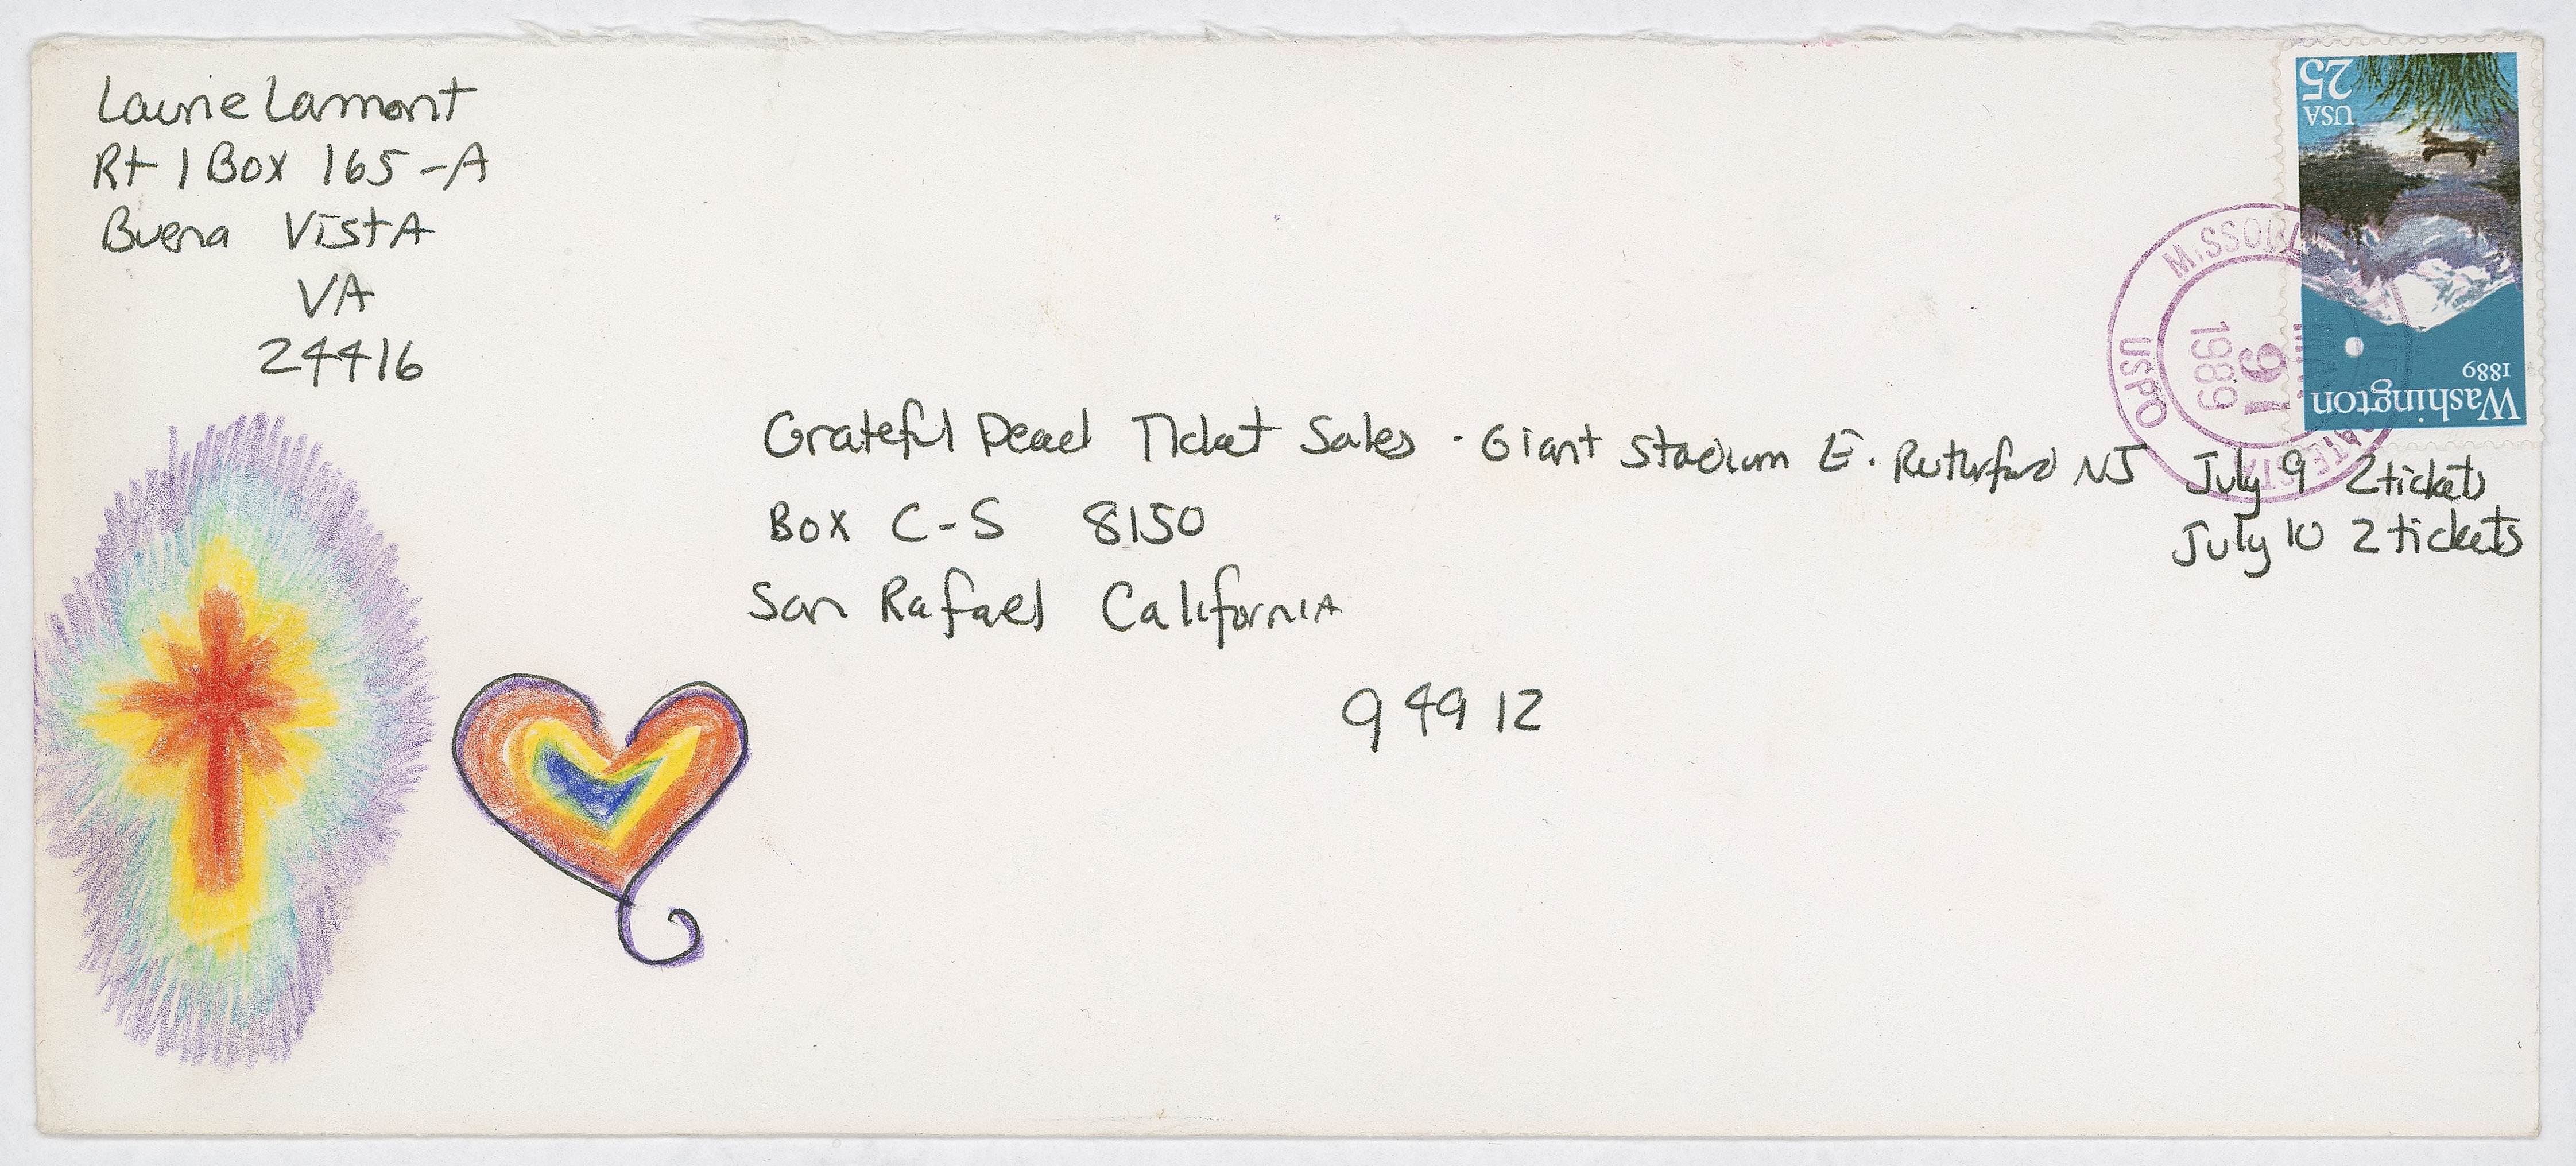 Laurie Lamont
Rt 1 Box 165-A
Buena VistA
VA
24416
25
USA
1889
Washington
USPO
1989
Grateful Dead Ticket Sales - Giant Stadium E. Ruterford NJ July 9 2 tickets
July 10 2 tickets
Box C-S 8150
San Rafael CaliforniA
94912